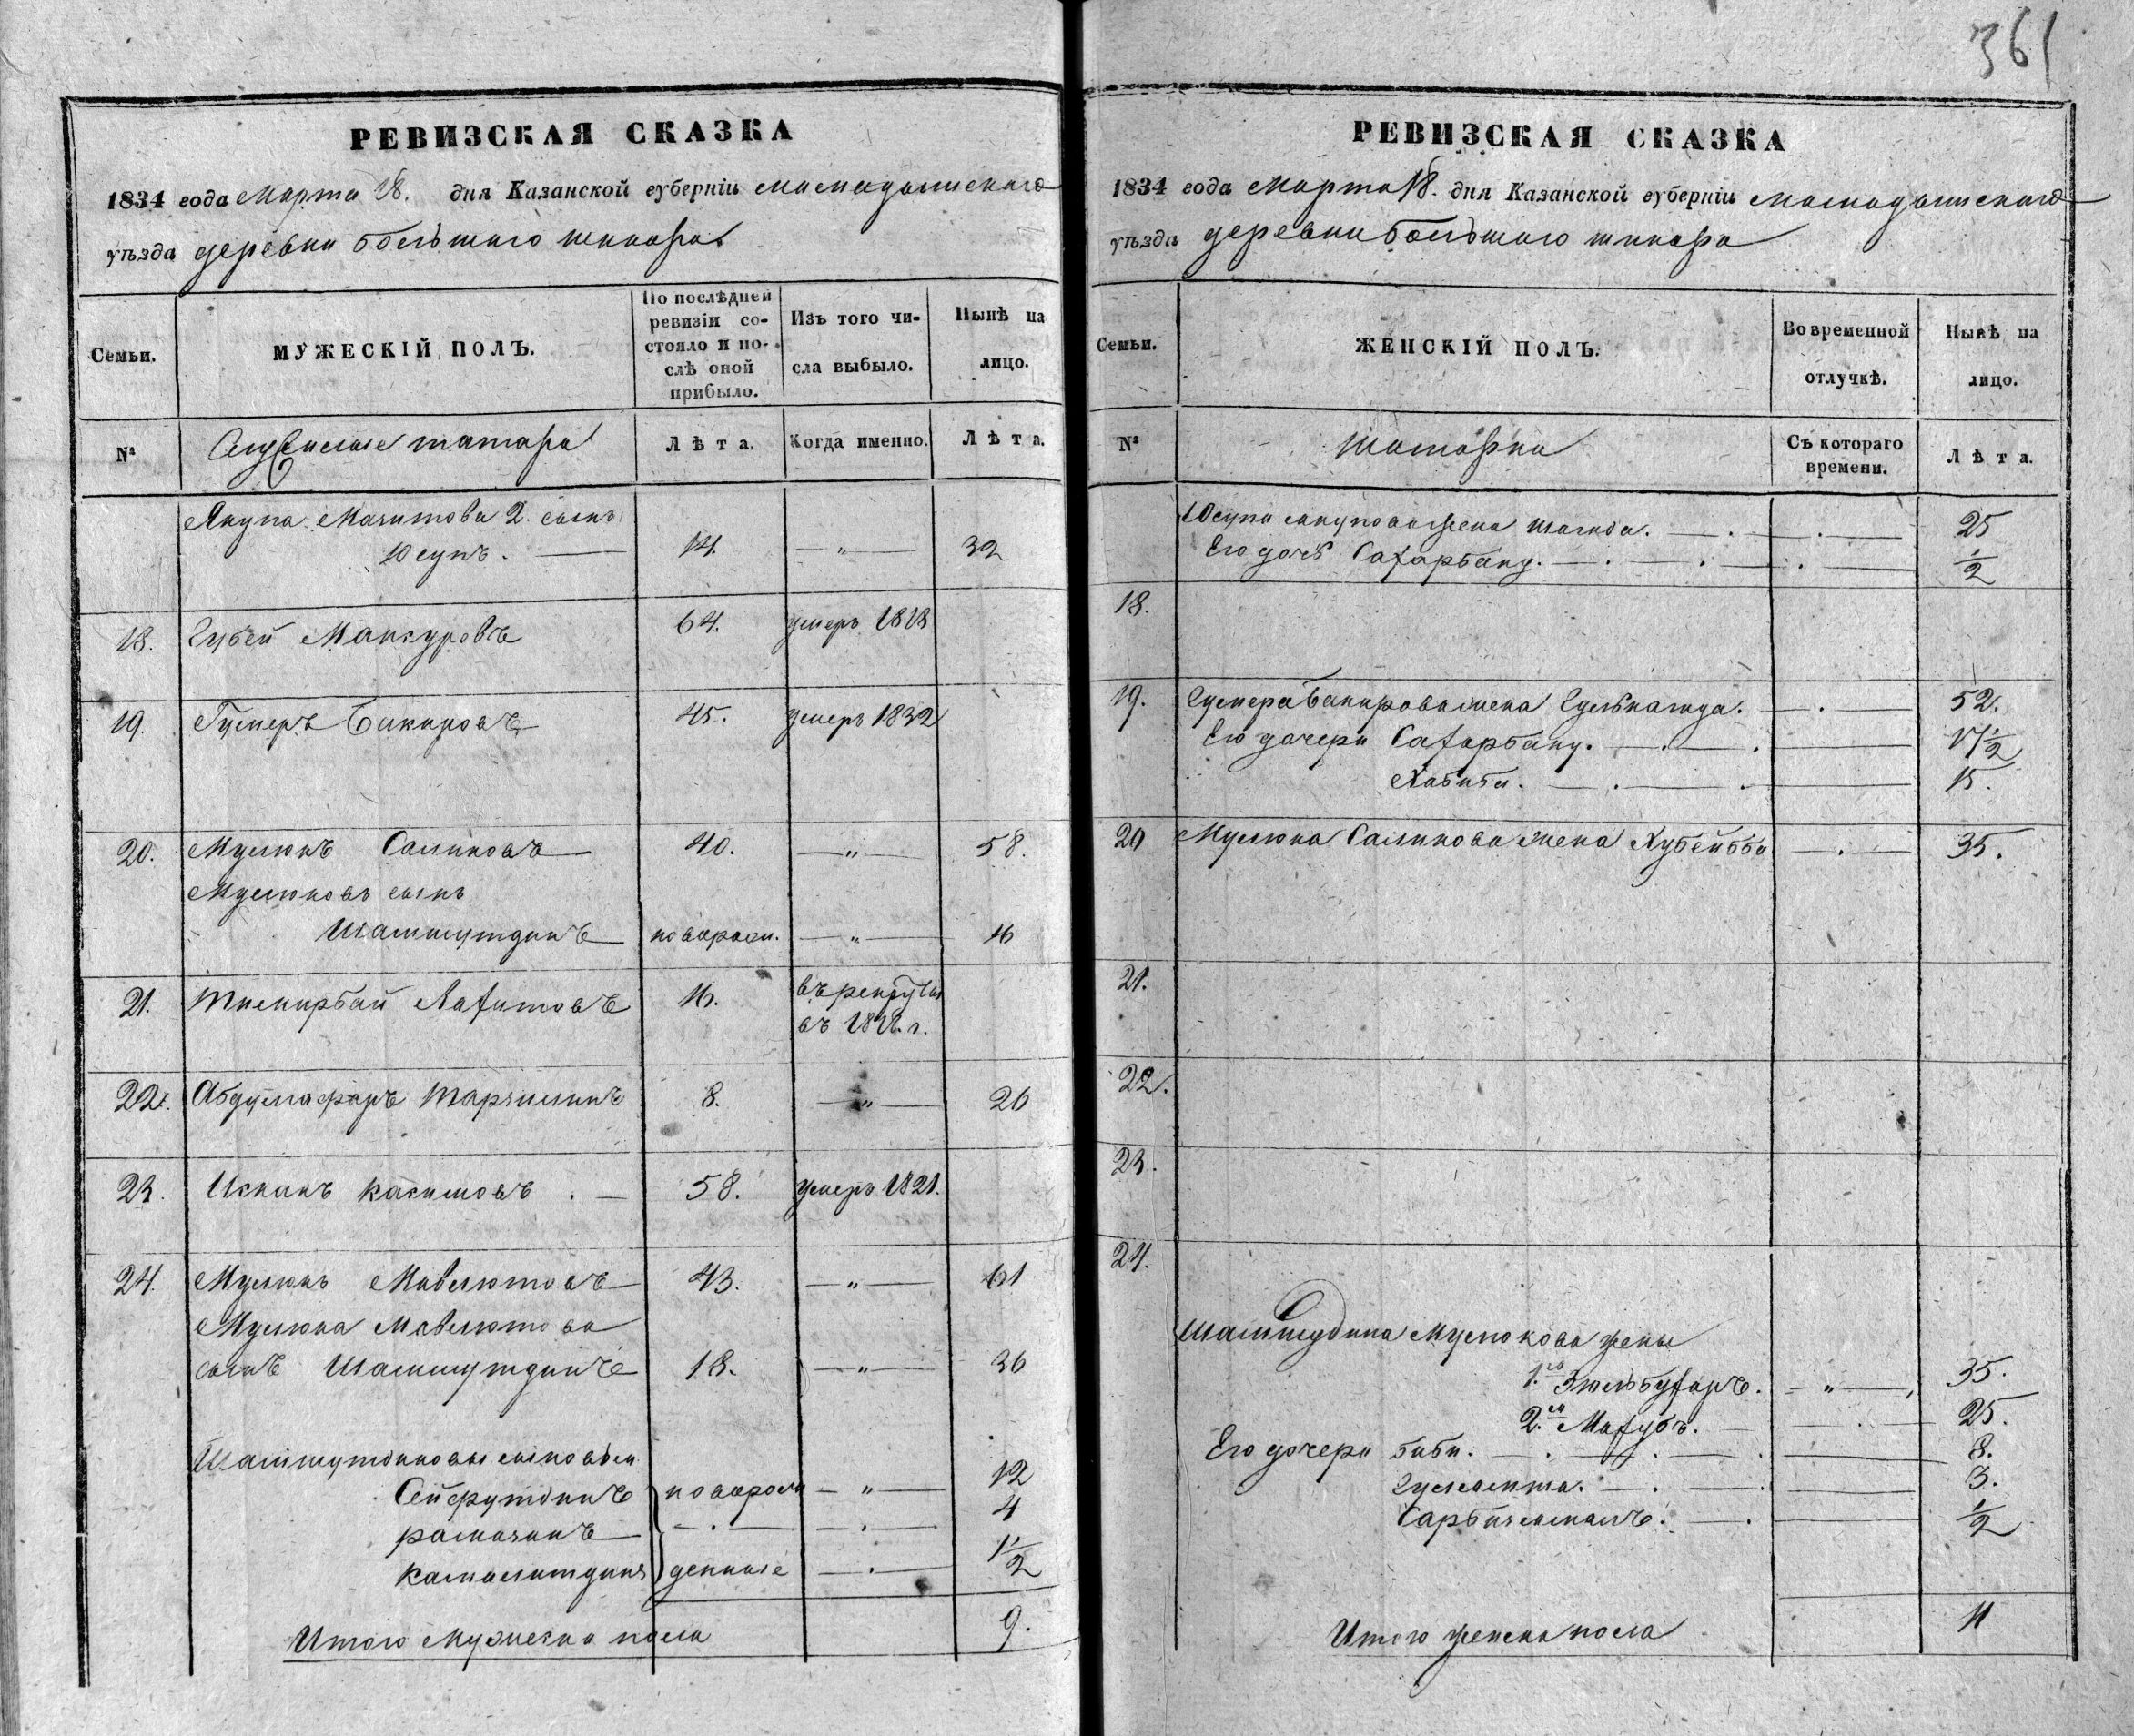 361
РЕВИЗСКАЯ СКАЗКА
1834 года Марта 18. дня Казанской губернiи Мамадышскаго
уѣзда деревни большаго шинара
Семьи.
МУЖЕСКІЙ ПОЛЪ.
По послѣдней ревизіи состояло и послѣ оной прибыло.
Изъ того числа выбыло.
Нынѣ на лицо.
№
Служилые татары
Лѣта.
Когда именно.
Лѣта.
Якупа Мачитова 2. сынъ
Юсупъ. — 14. — " — 32
18. Губей Мансуровъ 64. умеръ 1818
19. Гумеръ Бакировъ 45. умеръ 1832
20. Муслюкъ Салиховъ 40. — " — 58.
Муслюковъ сынъ
Шаммутдинъ новорож. — " — 16
21. Тимирбай Лафитовъ 16. въ рекруты
въ 1818. г.
22. 8. — " — 26
23. Исханъ Касимовъ. — 58. умеръ 1821.
24. Муслюкъ Мавлютовъ 43. — " — 61
Муслюка Мавлютова
сынъ Шаммутдинъ 18. — " — 36
Шаммутдиновы сыновья
Сейфутдинъ новорож — " — 12
рамазанъ — . — — . — 4
Камалитдинъ денные — . — 1 1/2
Итого Мужеска пола 9.
РЕВИЗСКАЯ СКАЗКА
1834 года Марта 18. дня Казанской губернiи Мамадышскаго
уѣзда деревни большаго шинара
Семьи.
ЖЕНСКІЙ ПОЛЪ.
Во временной отлучкѣ.
Нынѣ на лицо.
№
Татарки
Съ котораго времени.
Лѣта.
Юсупа Якупова жена Шагида. — . — . — 25
Его дочь Сафарбану. — . — . — . — 1/2
18.
19. Гумера Бакирова жена — . — 52.
Его дочери Сафарбану. — . — . — 17 1/2
Хабиби. — . — . — 15.
20 Муслюка Салихова жена Хубейбби — . — 35.
21.
22.
23.
24.
Шаммутдина Муслюкова жены
1.ая — " — 35.
2.ая Мафубъ. — . — 25.
Его дочери биби. — . — . — . — 8.
— . — . — 3.
— . — 1/2
Итого женска пола 11